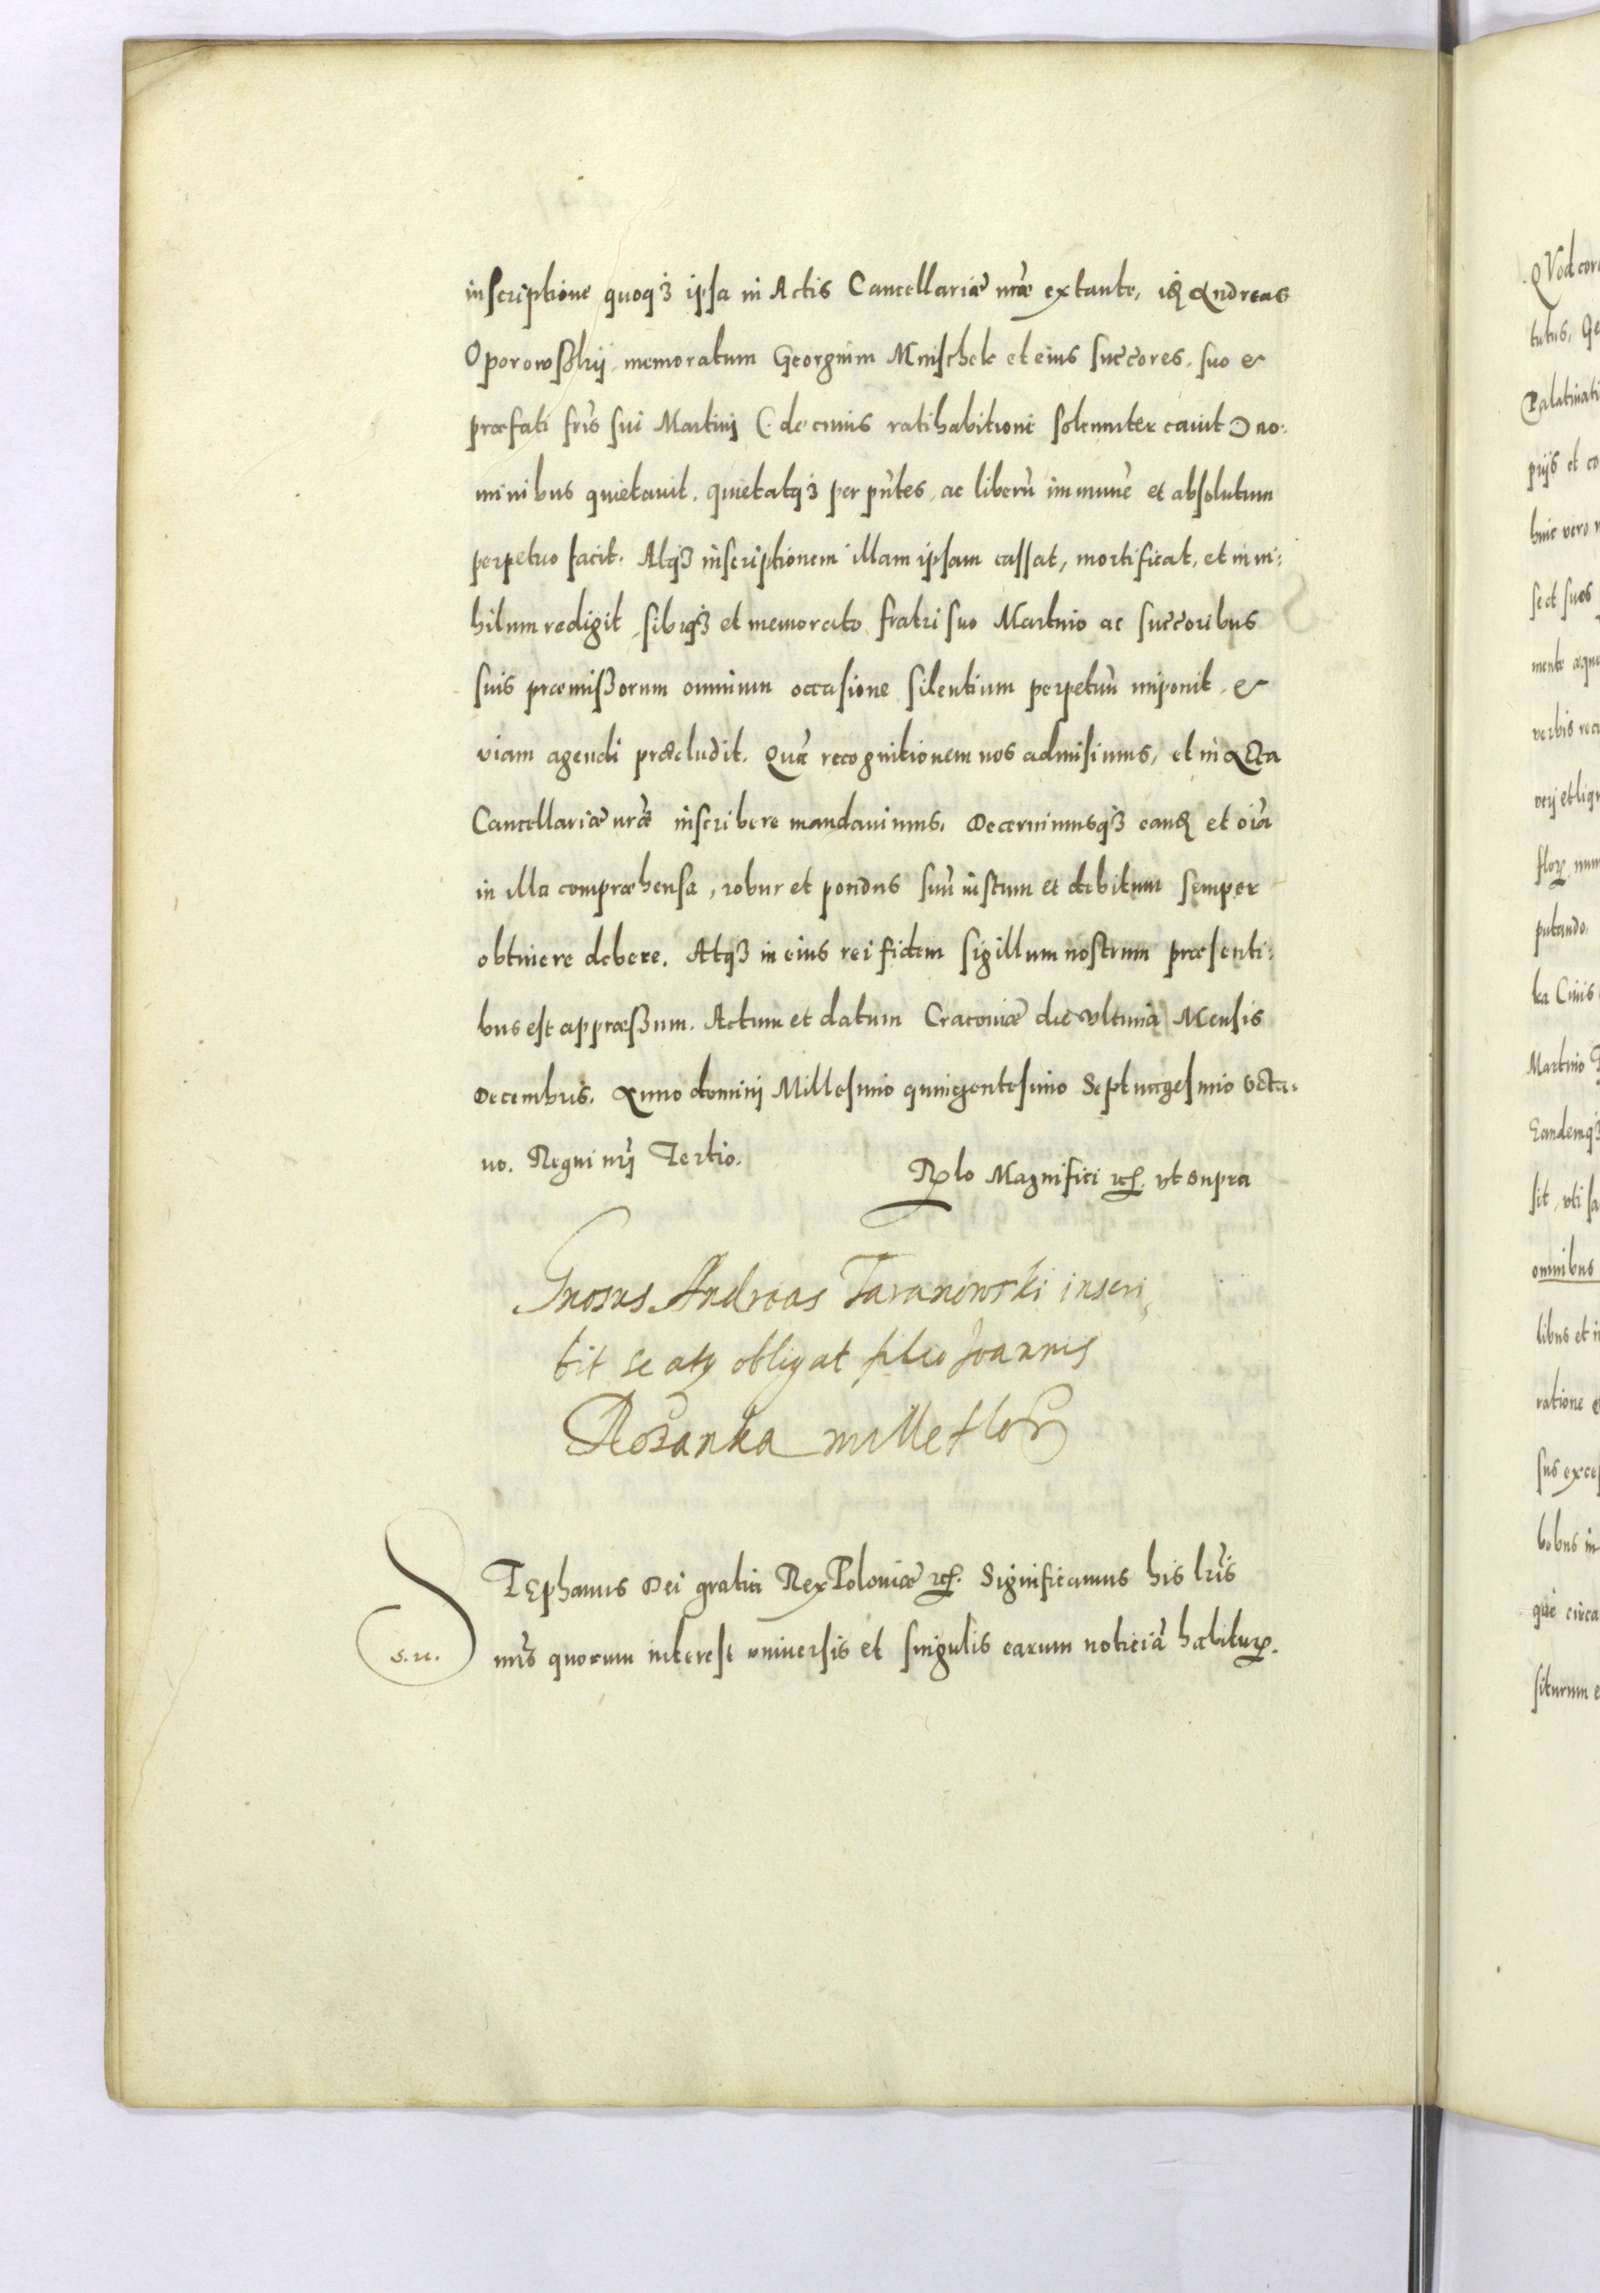 inscriptione quoqȝ ipsa in Actis Cancellariæ nrãe extante, idẽ Andreas
Oporowskij memoratum Georgium Mnischek et eius succores. suo &
præfati fris sui Martini (: de cuius ratihabitione solenniter cauit :) no:
minibus quietauit. quietatqȝ per pntes, ac liberũ immunẽ et absolutum
perpetuo facit. Atqȝ inscriptionem illam ipsam cassat, mortificat, et in ni:
hilum redigit, sibiqȝ et memorato fratri suo Martino ac succoribus
suis præmissorum omnium occasione silentium perpetuũ imponit &
viam agendi præcludit. Quã recognitionem nos admisimus, et in Acta
Cancellariæ nrãe inscribere mandauimus. Decernimusqȝ eandẽ et oĩa
in illa compræhensa, robur et pondus suũ iustum et debitum semper
obtinere debere. Atqȝ in eius rei fidem sigillum nostrum præsenti:
bus est appræssum. Actum et datum Cracoviæ die vltima Mensis
Decembris. Anno domini Millesimo quingentesimo Septuagesimo octa:
uo. Regni nrĩ Tertio.
Rlo Magnifici etc. vt supra
Gnosus Andreas Taranowski inscri
bit se atqȝ obligat filio Joannis
Rozanka mille flor
STEphanus Dei gratia Rex Poloniæ etc. Significamus his lrĩs
s.n.
nrĩs quorum interest vniuersis et singulis earum noticiã habitur.
QVod cor
tutus, Ge
Palatinati
pijs et co
huic vero n
sect suos
mente æque
verbis reca
verj et liqu
flor num
putando.
ka Ciuis
Martino
Eandemqȝ
sit, vti sa
omnibus
libus et i
ratione e
sus excep
bobus in
què circa
siturum e